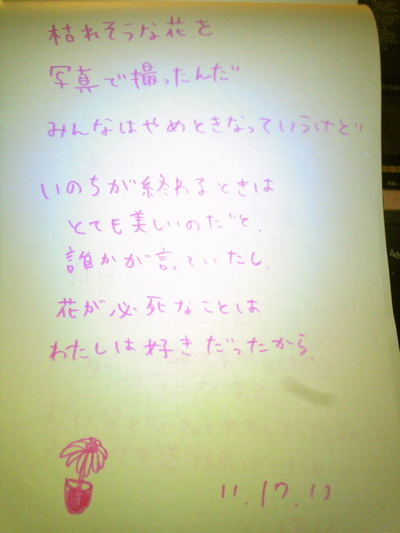 枯れそうな花を
写真で撮ったんだ
みんなはやめときなっていうけど
いのちが終わるときは
とても美しいのだと、
誰かが言っていたし、
花が必死なことは
わたしは好きだったから、
11.17.17